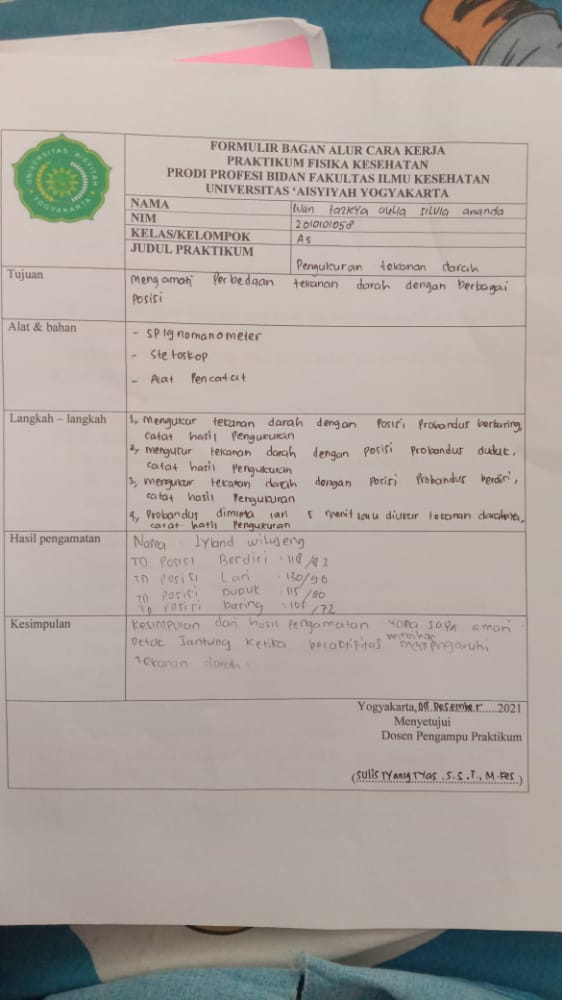 UNIVERSITAS 'AISYIYAH
YOGYAKARTA
FORMULIR BAGAN ALUR CARA KERJA
PRAKTIKUM FISIKA KESEHATAN
PRODI PROFESI BIDAN FAKULTAS ILMU KESEHATAN
UNIVERSITAS 'AISYIYAH YOGYAKARTA
NAMA Wan tazkya aulia silvia ananda
NIM 2010101058
KELAS/KELOMPOK A5
JUDUL PRAKTIKUM Pengukuran tekanan darah
Tujuan mengamati Perbedaan tekanan darah dengan berbagai
Posisi
Alat & bahan - SPignomanometer
- Stetoskop
- Alat Pencatat
Langkah – langkah 1, mengukur tekanan darah dengan Posisi Probandus berbaring,
catat hasil Pengukuran
2, mengukur tekanan darah dengan posisi Probandus duduk,
catat hasil Pengukuran
3, mengukur tekanan darah dengan Posisi Probandus berdiri,
catat hasil Pengukuran
4, Probandus diminta lari 5 menit lalu diukur tekanan darahnya,
catat hasil Pengukuran
Hasil pengamatan Nama : Iyland wilujeng
TD Posisi Berdiri : 118/83
TD Posisi Lari : 130/90
TD Posisi Duduk : 115/80
TD Posisi baring : 105/72
Kesimpulan Kesimpulan dari hasil Pengamatan yang saya amati
Detak Jantung Ketika beraktifitas mempengaruhi
Tekanan darah.
Yogyakarta, 08 Desember.....2021
Menyetujui
Dosen Pengampu Praktikum
(Sulistyaningtyas .S.S.T., M.Kes)